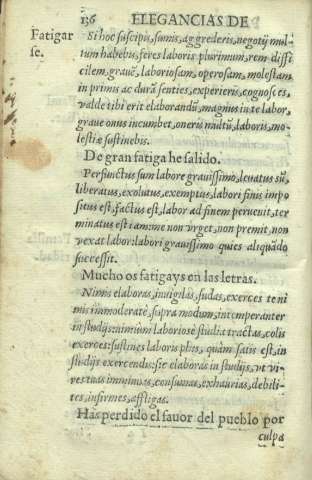 136 ELEGANCIAS DE
Fatigar
se.
Si hoc suscipis, sumis, aggrederis, negotij mul-
tum habebis, feres laboris plurimum, rem diffi
cilem, grauẽ, laboriosam, operosam, molestam
in primis ac durã senties, experieris, cognosces,
valde tibi erit elaborandũ, magnus in te labor,
graue onus incumbet, oneris multũ, laboris, mo-
lestiæ sustinebis.
De gran fatiga he salido.
Perfunctus sum labore grauissimo, leuatus sũ,
liberatus, exolutus, exemptus, labori finis impo
situs est, factus est, labor ad finem peruenit, ter
minatus est iam: me non vrget, non premit, non
vexat labor: labori grauissimo quies aliquãdo
successit.
Mucho os fatigays en las letras.
Nimis elaboras, inuigilas, sudas, exerces te ni
mis immoderatè, supra modum, intemperanter
in studijs: nimium laboriosè studia tractas, colis
exerces: sustines laboris plus, quàm satis est, in
studijs exercendis: sic elaboras in studijs, vt vi-
res tuas imminuas, consumas, exhaurias, debili-
tes, infirmes, affligas.
Has perdido el fauor del pueblo por
culpa